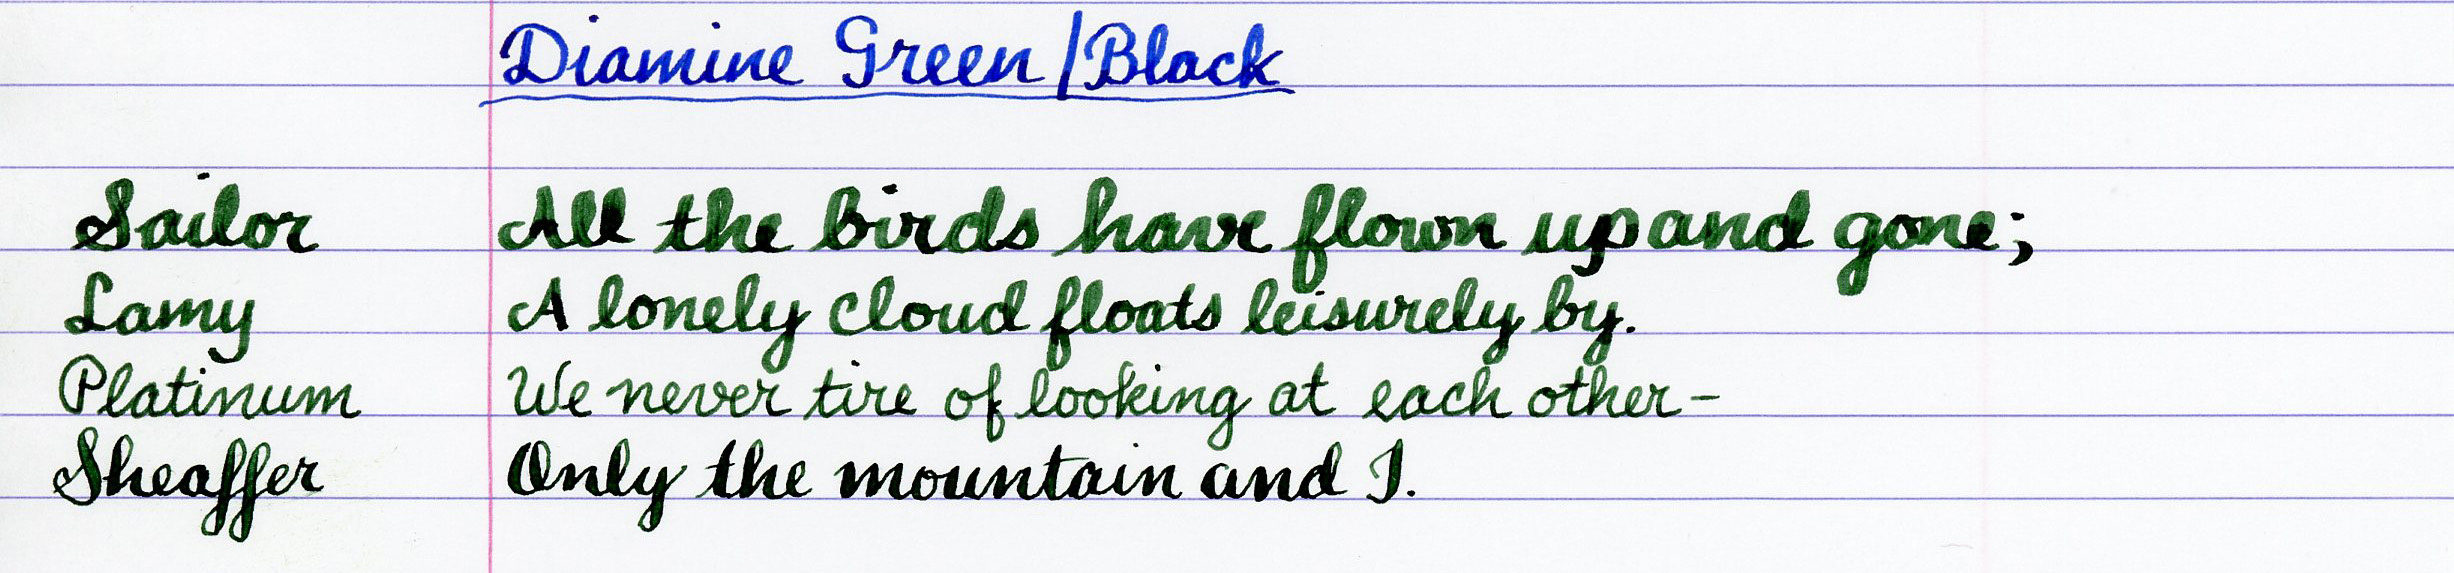 Diamine Green/Black
Sailor All the birds have flown up and gone;
Lamy A lonely cloud floats leisurely by.
Platinum We never tire of looking at each other-
Sheaffer Only the mountain and I.